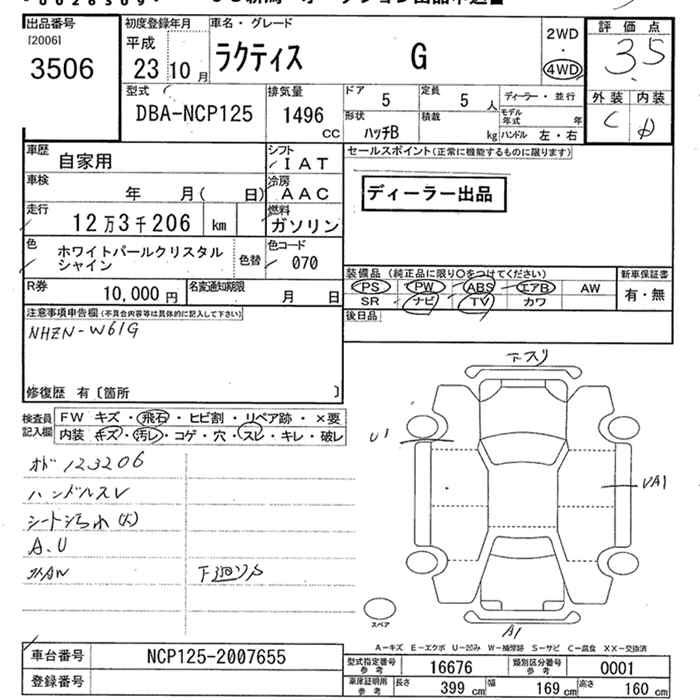 出品番号
[2006]
3506
初度登録年月
平成
23 10 月
車名・グレード
ラクティス G
2WD
・
4WD
評価点
3.5
外装 内装
C
型式
DBA-NCP125
排気量
1496
CC
ドア
5
定員
5 人
形状
ハッチB
積載
kg
ディーラー・並行
モデル年式 年
ハンドル 左・右
車歴
自家用
シフト
IAT
車検
年 月( 日)
冷房
AAC
走行
12万3千206 km
燃料
ガソリン
色
ホワイトパールクリスタル
シャイン
色替
色コード
070
R券
10,000 円
名変通知期限
月 日
セールスポイント(正常に機能するものに限ります)
ディーラー出品
装備品(純正品に限り○をつけてください)
PS PW ABS エアB AW
SR ナビ TV カワ
新車保証書
有・無
後日品
注意事項申告欄(不具合内容等は具体的に記入して下さい)
NHZN-W61G
修復歴 有〔箇所 〕
検査員
記入欄
FW キズ・飛石・ヒビ割・リペア跡・×要
内装・キズ・汚レ・コゲ・穴・スレ・キレ・破レ
オド123206
ハンドルスレ
シート汚れ(大)
A.U
下廻り
下スリ
U1
UA1
A1
スペア
A-キズ E-エクボ U-凹み W-補修跡 S-サビ C-腐食 XX-交換済
車台番号
NCP125-2007655
登録番号
型式指定番号
参考
16676
類別区分番号
参考
0001
車庫証明用
参考
長さ 399 cm 幅 169 cm 高さ 160 cm